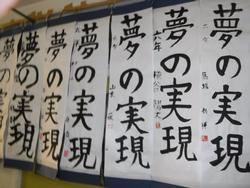 夢の実現
夢の実現
六年
夢の実現
夢の実現
夢の実現
夢の実現
夢の実現